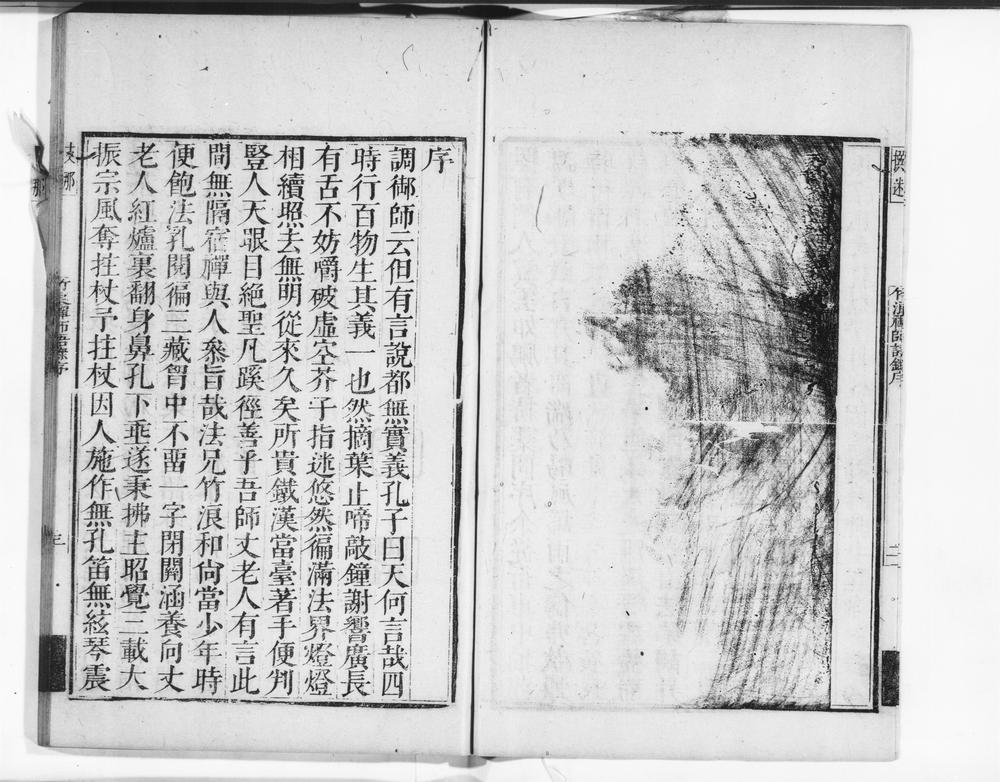 撰述
竹浪禪師語錄序
二
序
調御師云但有言說都無實義孔子曰天何言哉四
時行百物生其義一也然摘葉止啼敲鐘謝響廣長
有舌不妨嚼破虛空芥子指迷悠然徧滿法界燈燈
相續照去無明從來久矣所貴鐵漢當臺著手便判
豎人天眼目絕聖凡蹊徑善乎吾師丈老人有言此
間無隔宿禪與人叅旨哉法兄竹浪和尙當少年時
便飽法乳閱徧三藏胷中不畱一字閉關涵養向丈
老人紅爐裏翻身鼻孔下埀遂秉拂主昭覺三載大
振宗風奪拄杖予拄杖因人施作無孔笛無絃琴震
支那
三